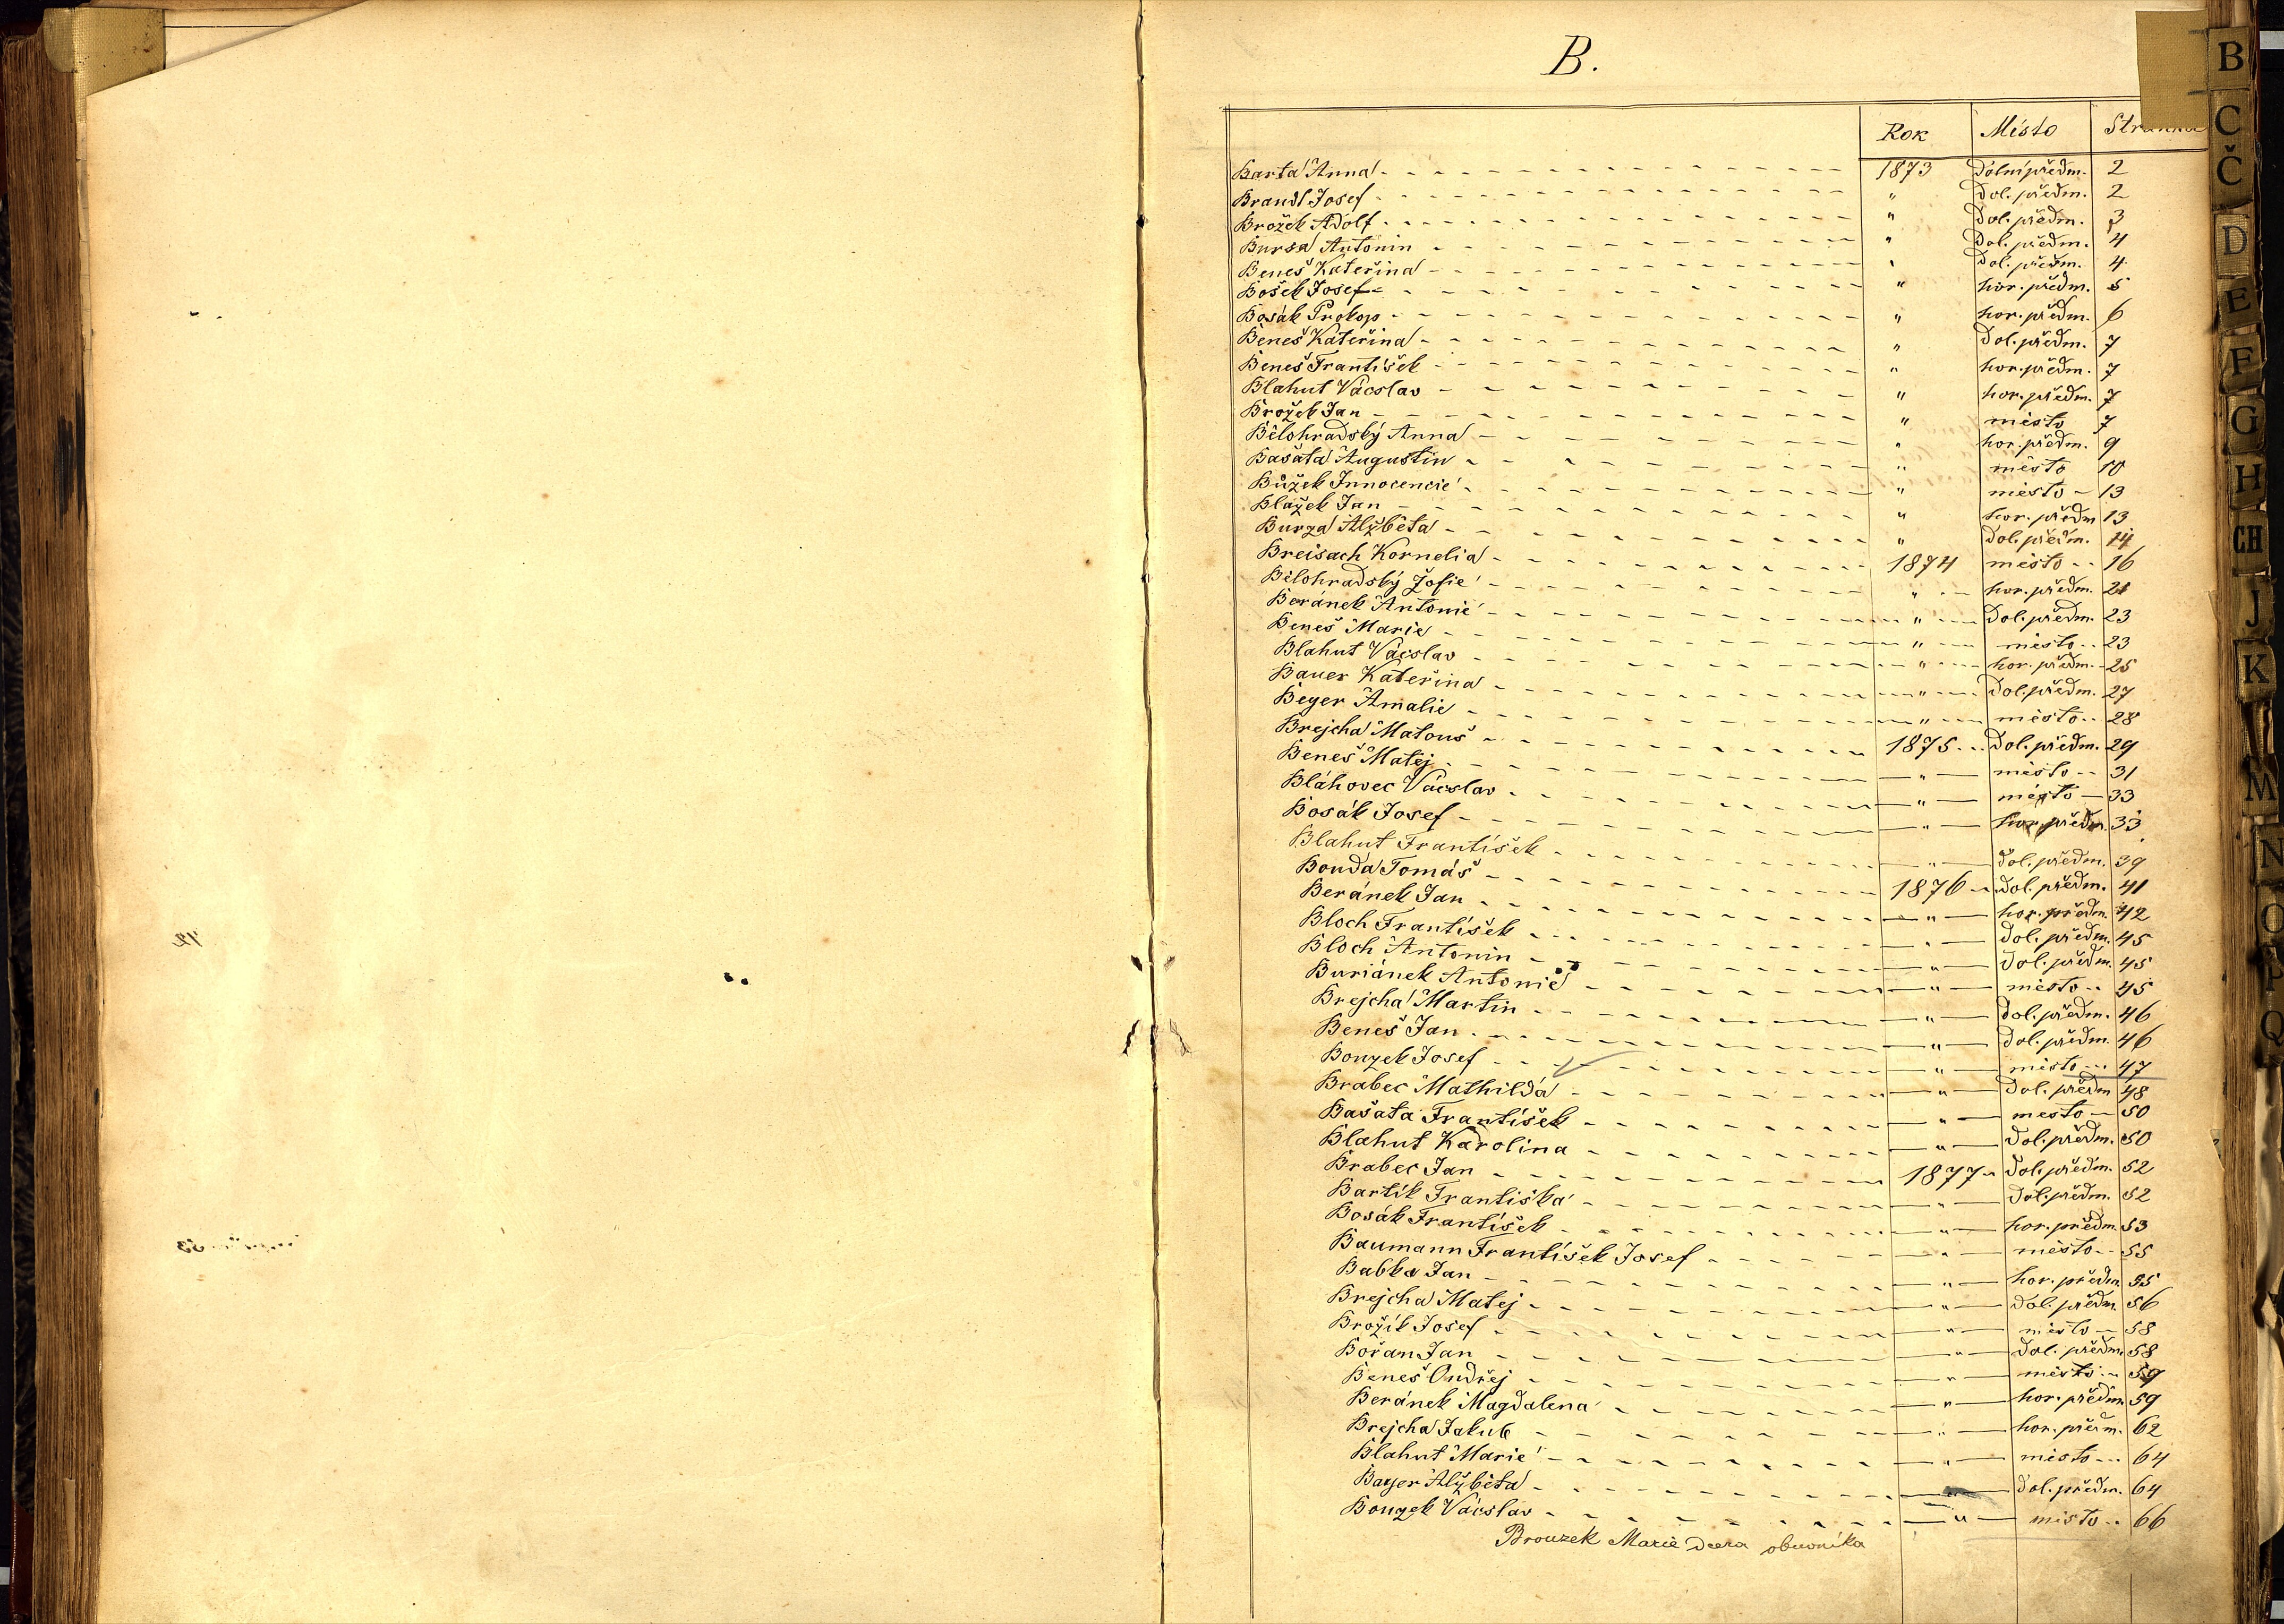 B.
Rok Místo Stránka
Barta Anna 1873 Dolní předm. 2
Brandl Josef " Dol. předm. 2
Brožek Adolf " Dol. předm. 3
Bursa Antonín " Dol. předm. 4
Beneš Kateřina " Dol. předm. 4
Bošek Josef " hor. předm. 5
Bosák Prokop " hor. předm. 6
Beneš Kateřina " Dol. předm. 7
Beneš František " hor. předm. 7
Blahut Václav " hor. předm. 7
Brožek Jan " město 7
Bělohradský Anna " hor. předm. 9
Bašata Augustin " město 10
Bůžek Innocencie " město 13
Blažek Jan " hor. předm 13
Burza Alžběta " Dol. předm. 14
Breisach Kornelia 1874 město 16
Bělohradský Žofie " hor. předm. 21
Beránek Antonie " Dol. předm. 23
Beneš Marie " město 23
Blahut Václav " hor. předm. 25
Bauer Kateřina " Dol. předm. 27
Beyer Amalie " město 28
Brejcha Matouš 1875 Dol. předm. 29
Beneš Matěj " město 31
Bláhovec Václav " město 33
Bosák Josef " hor. předm. 33
Blahut František " Dol. předm. 39
Bouda Tomáš 1876 Dol. předm. 41
Beránek Jan " hor. předm. 42
Bloch František " Dol. předm. 45
Bloch Antonín " Dol. předm. 45
Buriánek Antonie " město 45
Brejcha Martin " Dol. předm. 46
Beneš Jan " Dol. předm. 46
Bouzek Josef " město 47
Brabec Mathilda " Dol. předm 48
Bašata František " mesto 50
Blahut Karolina " Dol. předm. 50
Brabec Jan 1877 Dol. předm. 52
Bartík Františka " Dol. předm. 52
Bosák František " hor. předm. 53
Baumann František Josef " město 55
Babka Jan " hor. předm. 55
Brejcha Matěj " Dol. předm. 56
Brožík Josef " město 58
Bořan Jan " Dol. předm. 58
Beneš Ondřej " město 59
Beránek Magdalena " hor. předm. 59
Brejcha Jakub " hor. předm. 62
Blahut Marie " město 64
Bayer Alžběta " Dol. předm. 64
Bouzek Václav " místo 66
Brouzek Marie dcera obuvníka
B
C
Č
D
E
F
G
H
CH
J
K
M
N
O
P
Q